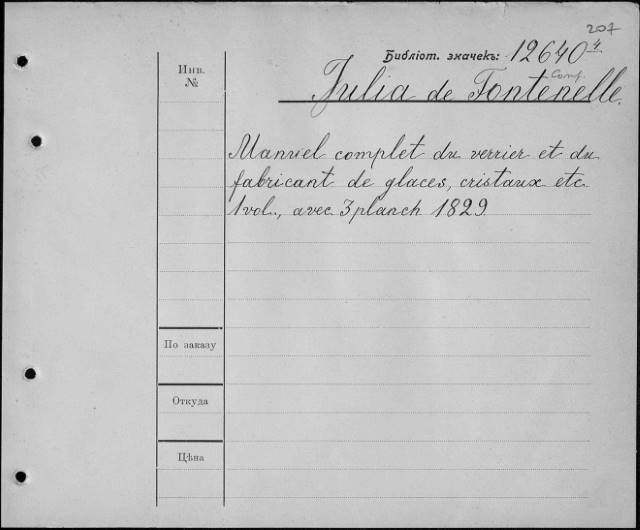 207
Библіот. значекъ: 12640 4
Инв.
№
Conf.
Julia de Fontenelle.
Manuel complet du verrier et du
fabricant de glaces, cristaux etc
1 vol., avec 3 planch 1829.
По заказу
Откуда
Цѣна